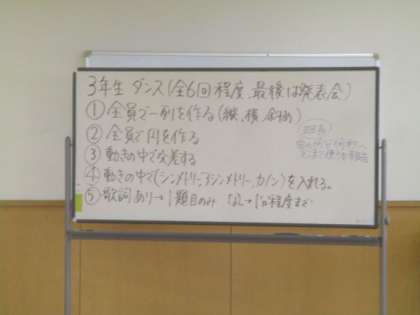 3年生 ダンス(全6回程度、最後は発表会)
①全員で一列を作る(縦、横、斜め)
②全員で円を作る
③動きの中で交差する
④動きの中で(シンメトリー、アシンメトリー、カノン)を入れる。
⑤歌詞あり→1題目のみ なし→1分程度まで